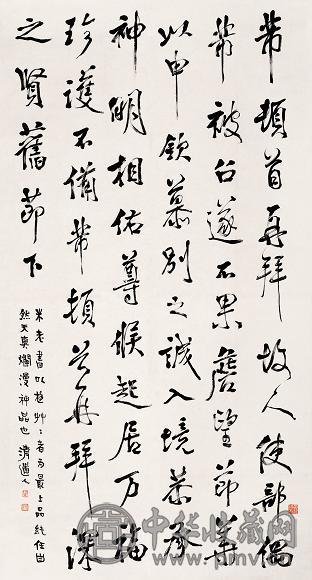 芾頓首再拜故人使部偶
芾被召遂不果瞻望節華
以申欽慕別之誠入境恭承
神明相佑尊候起居万福
珍護不備芾頓首再拜深
之賢舊節下
米老書以艸〻者為最上品純任自
然天真爛漫神品也清道人
中华收藏网